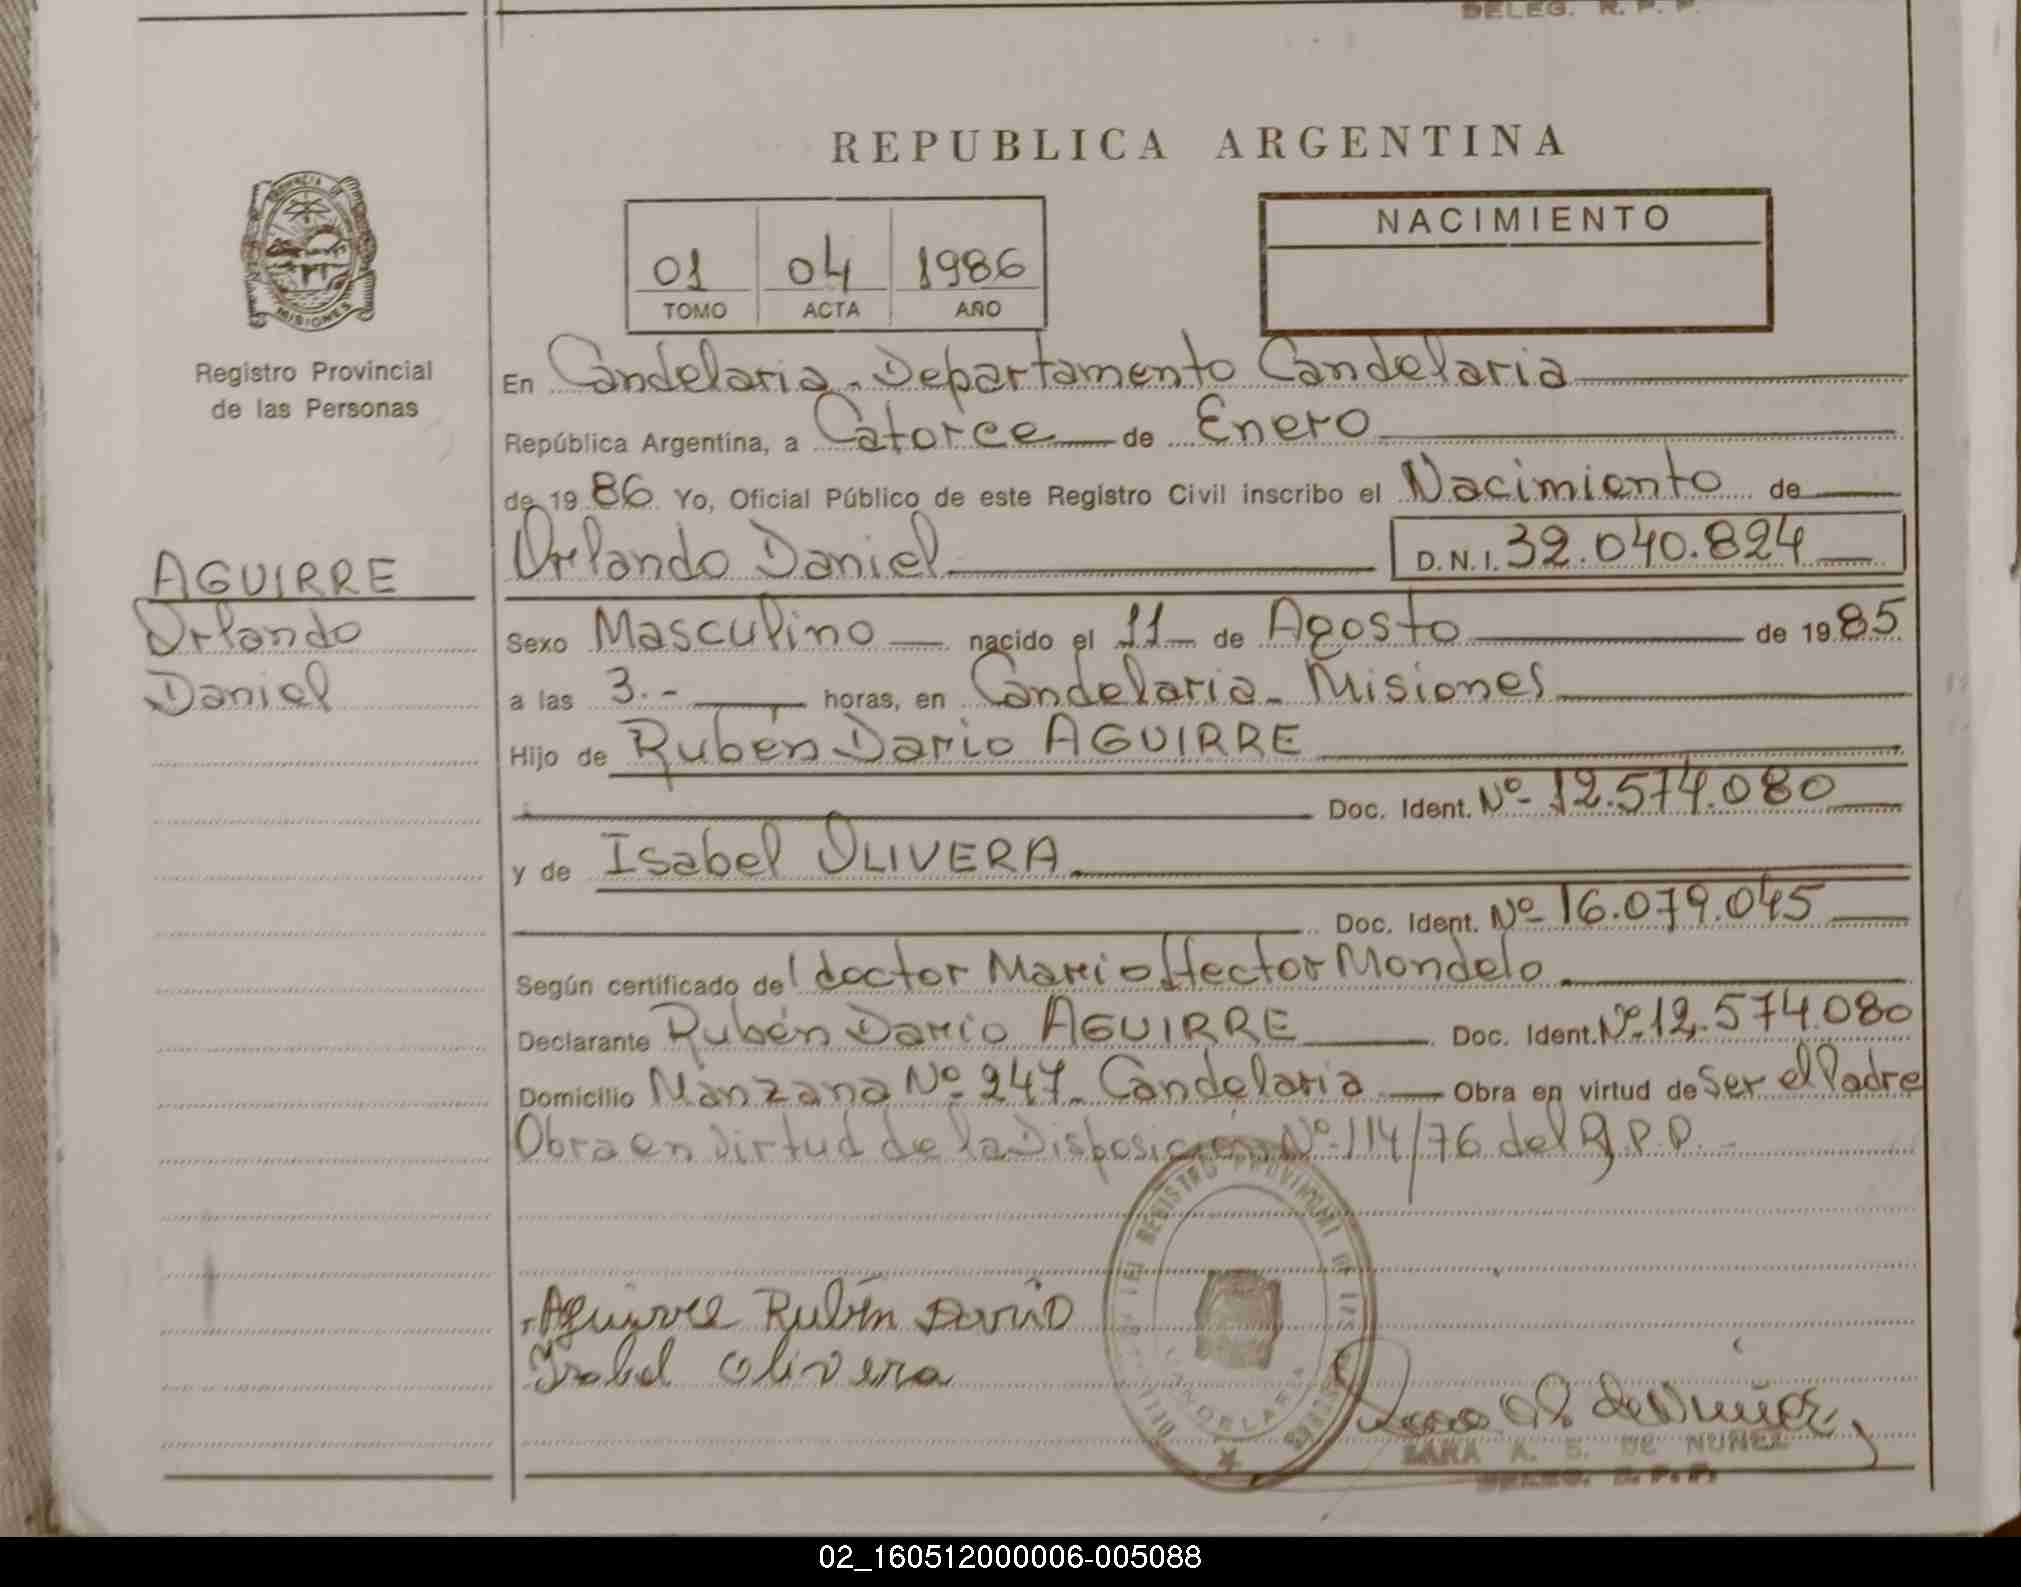 DELEG. R. P. P.
REPUBLICA ARGENTINA
PROVINCIA DE
MISIONES
Registro Provincial
de las Personas
01 04 1986
TOMO ACTA AÑO
NACIMIENTO
En Candelaria - Departamento Candelaria
República Argentina, a Catorce de Enero
de 1986 Yo, Oficial Público de este Registro Civil inscribo el Nacimiento de
AGUIRRE
Orlando
Daniel
Orlando Daniel D.N.I. 32.040.824
Sexo Masculino nacido el 11 de Agosto de 1985
a las 3.- horas, en Candelaria - Misiones
Hijo de Rubén Dario AGUIRRE
Doc. Ident. Nº 12.574.080
y de Isabel OLIVERA
Doc. Ident. Nº 16.079.045
Según certificado del doctor Mario Hector Mondelo
Declarante Rubén Dario AGUIRRE Doc. Ident. Nº 12.574.080
Domicilio Manzana Nº 247 - Candelaria Obra en virtud de Ser el Padre
Obra en Virtud de la Disposición Nº 114/76 del R.P.P. -
Aguirre Rubén Dario
Isabel Olivera
REGISTRO PROVINCIAL DE LAS
CANDELARIA
SARA A. S. DE NUÑEZ
DELEG. R. P. P.
02_160512000006-005088